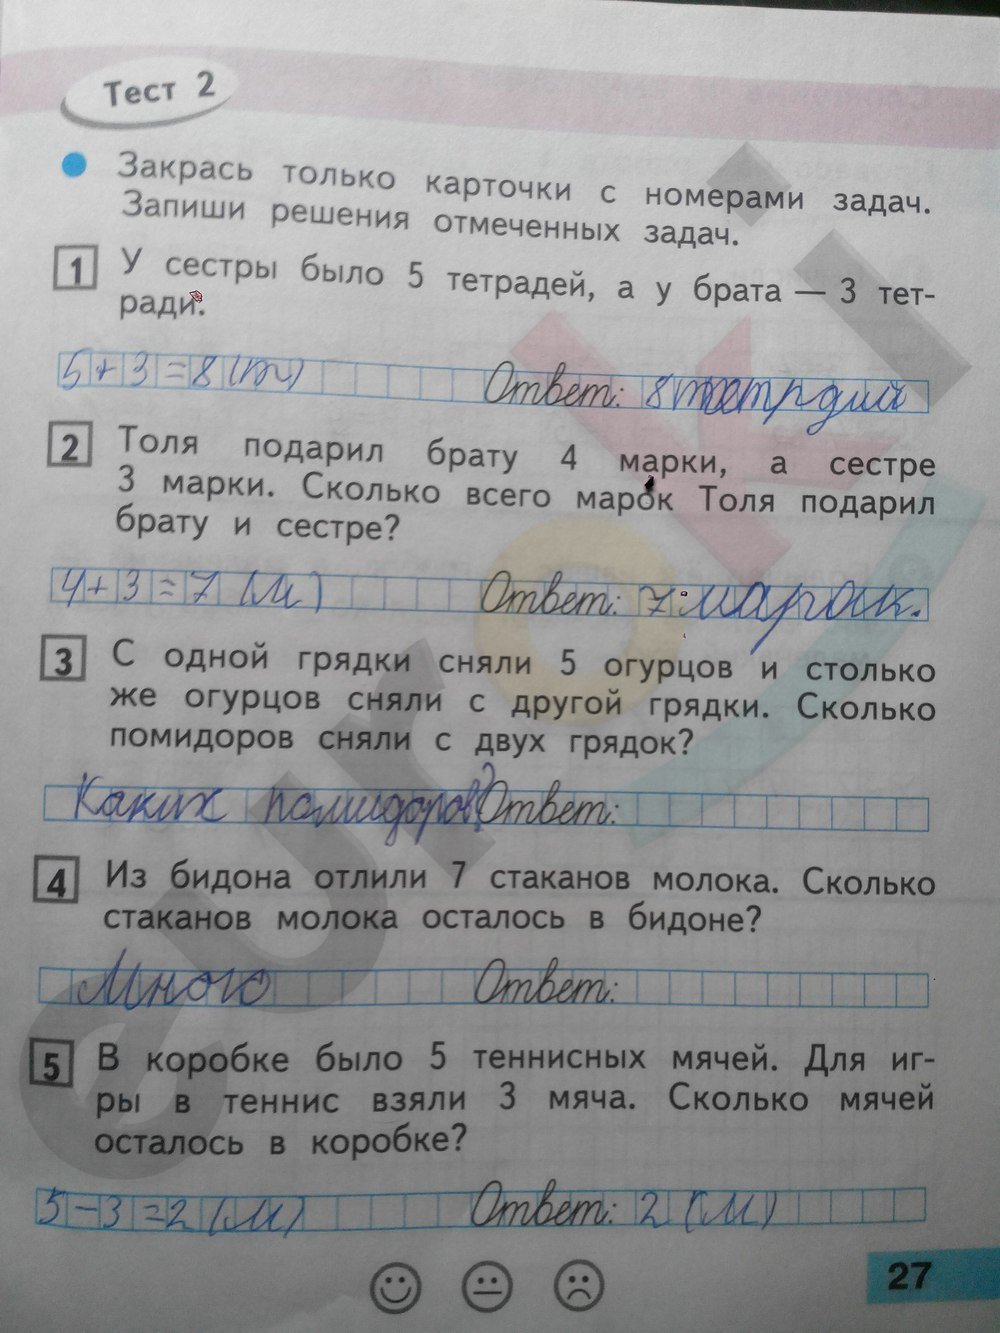 Тест 2
Закрась только карточки с номерами задач.
Запиши решения отмеченных задач.
1 У сестры было 5 тетрадей, а у брата — 3 тет-
ради.
5+3=8 (т) Ответ: 8 тетрдий
2 Толя подарил брату 4 марки, а сестре
3 марки. Сколько всего марок Толя подарил
брату и сестре?
4+3=7 (м) Ответ: 7 марок.
3 С одной грядки сняли 5 огурцов и столько
же огурцов сняли с другой грядки. Сколько
помидоров сняли с двух грядок?
Каких помидоров? Ответ:
4 Из бидона отлили 7 стаканов молока. Сколько
стаканов молока осталось в бидоне?
Много Ответ:
5 В коробке было 5 теннисных мячей. Для иг-
ры в теннис взяли 3 мяча. Сколько мячей
осталось в коробке?
5-3=2 (м) Ответ: 2 (м)
27
euroki